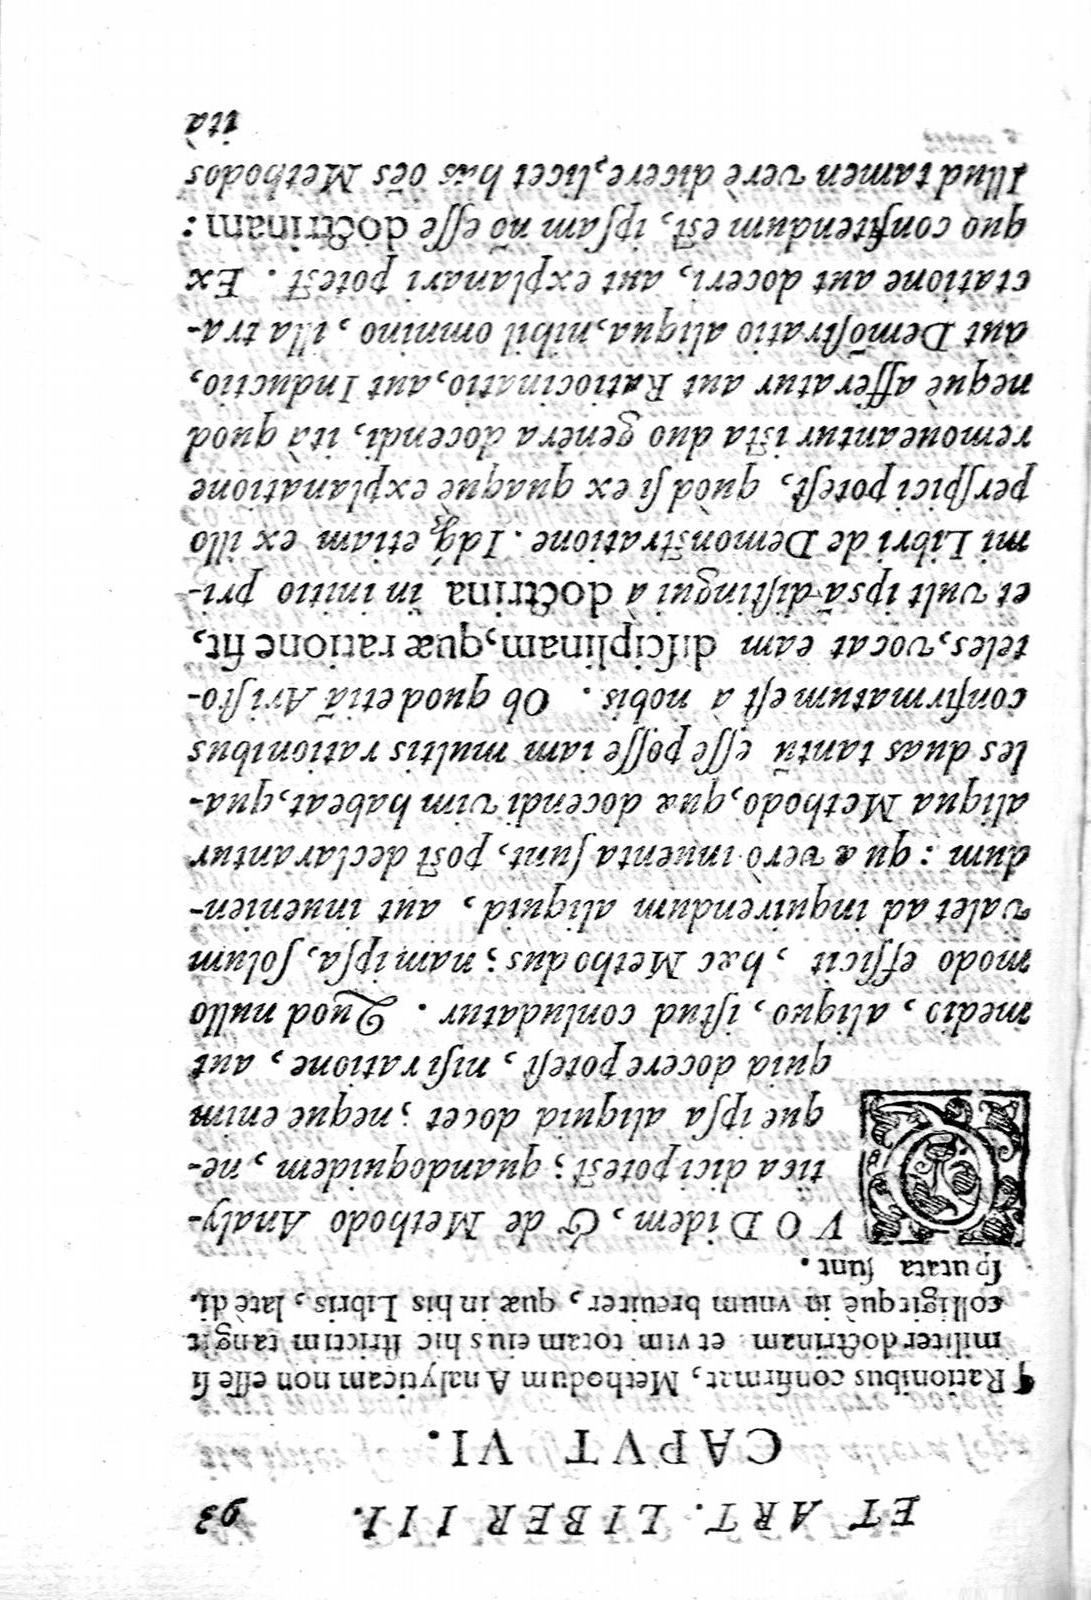 ET ART. LIBER IIII. 93
CAPVT VI.
¶ Rationibus confirmat, Methodum Analyticam non esse si
militer doctrinam et vim totam eius hic strictim tangit
colligitque in vnum breuiter, quæ in his Libris, latè di,
sputata sunt.
QVOD idem, & de Methodo Analy-
tica dici potest; quandoquidem, ne-
que ipsa aliquid docet; neque enim
quid docere potest, nisi ratione, aut
medio, aliquo, istud concludatur. Quod nullo
modo efficit, hæc Methodus; nam ipsa, solum
valet ad inquirendum aliquid, aut inuenien-
dum: quæ verò inuenta sunt, post declarantur
aliqua Methodo, quæ docendi vim habeat, qua-
les duas tantũ esse posse iam multis rationibus
confirmatum est à nobis. Ob quod etiã Aristo-
teles, vocat eam disciplinam, quæ ratione fit,
et vult ipsã distingui à doctrina in initio pri-
mi Libri de Demonstratione. Idq́; etiam ex illo
perspici potest, quòd si ex quaque explanatione
remoueantur ista duo genera docendi, ità quod
nequè afferatur aut Ratiocinatio, aut Inductio,
aut Demõstratio aliqua, nihil omnino, illa tra-
ctatione aut doceri, aut explanari potest. Ex
quo confitendum est, ipsam nõ esse doctrinam:
Illud tamen verè dicere, licet hàs oẽs Methodos
ità